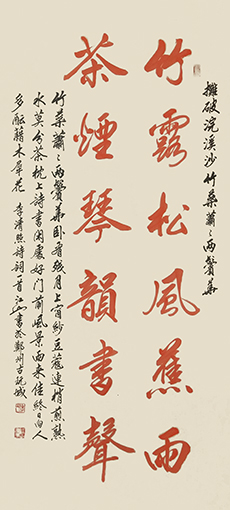 攤破浣溪沙竹桑蕭〻兩鬢華
竹露松風蕉雨
茶煙琴韻書聲
竹桑蕭〻兩鬢華卧看殘月上窗紗豆蔻連梢煎熟
水莫分茶枕上詩書閑處好門前風景雨來佳終日向人
多醞藉木犀花 李清照詩詞首 江山書於鄭州古玩城